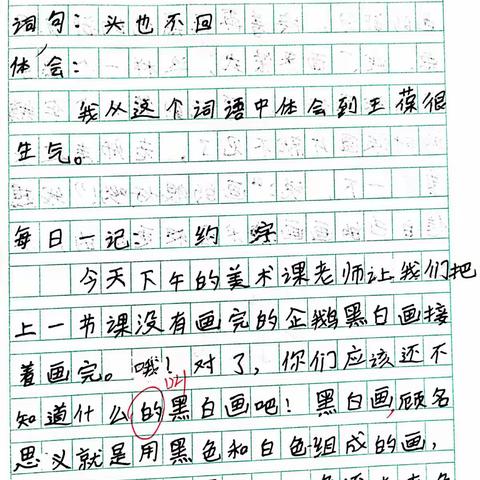 词句：头也不回
体会：
我从这个词语中体会到王葆很
生气。
每日一记：约 字
今天下午的美术课老师让我们把
上一节课没有画完的企鹅黑白画接
着画完。哦！对了，你们应该还不
知道什么的黑白画吧！黑白画，顾名
思义就是用黑色和白色组成的画，